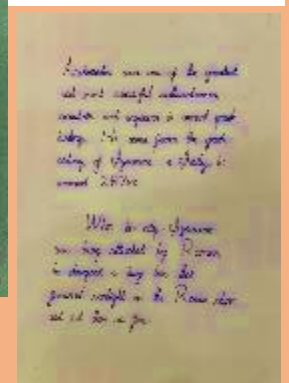 Archimedes was one of the greatest
and most successful mathematicians,
scientists and engineers in ancient greek
history. He came from the greek
colony of Syracuse in Sicily in
around 287 BC
When the city Syracuse
was being attacked by Romans,
he designed a large lens that
focused sunlight on the Roman ships
and set them on fire.